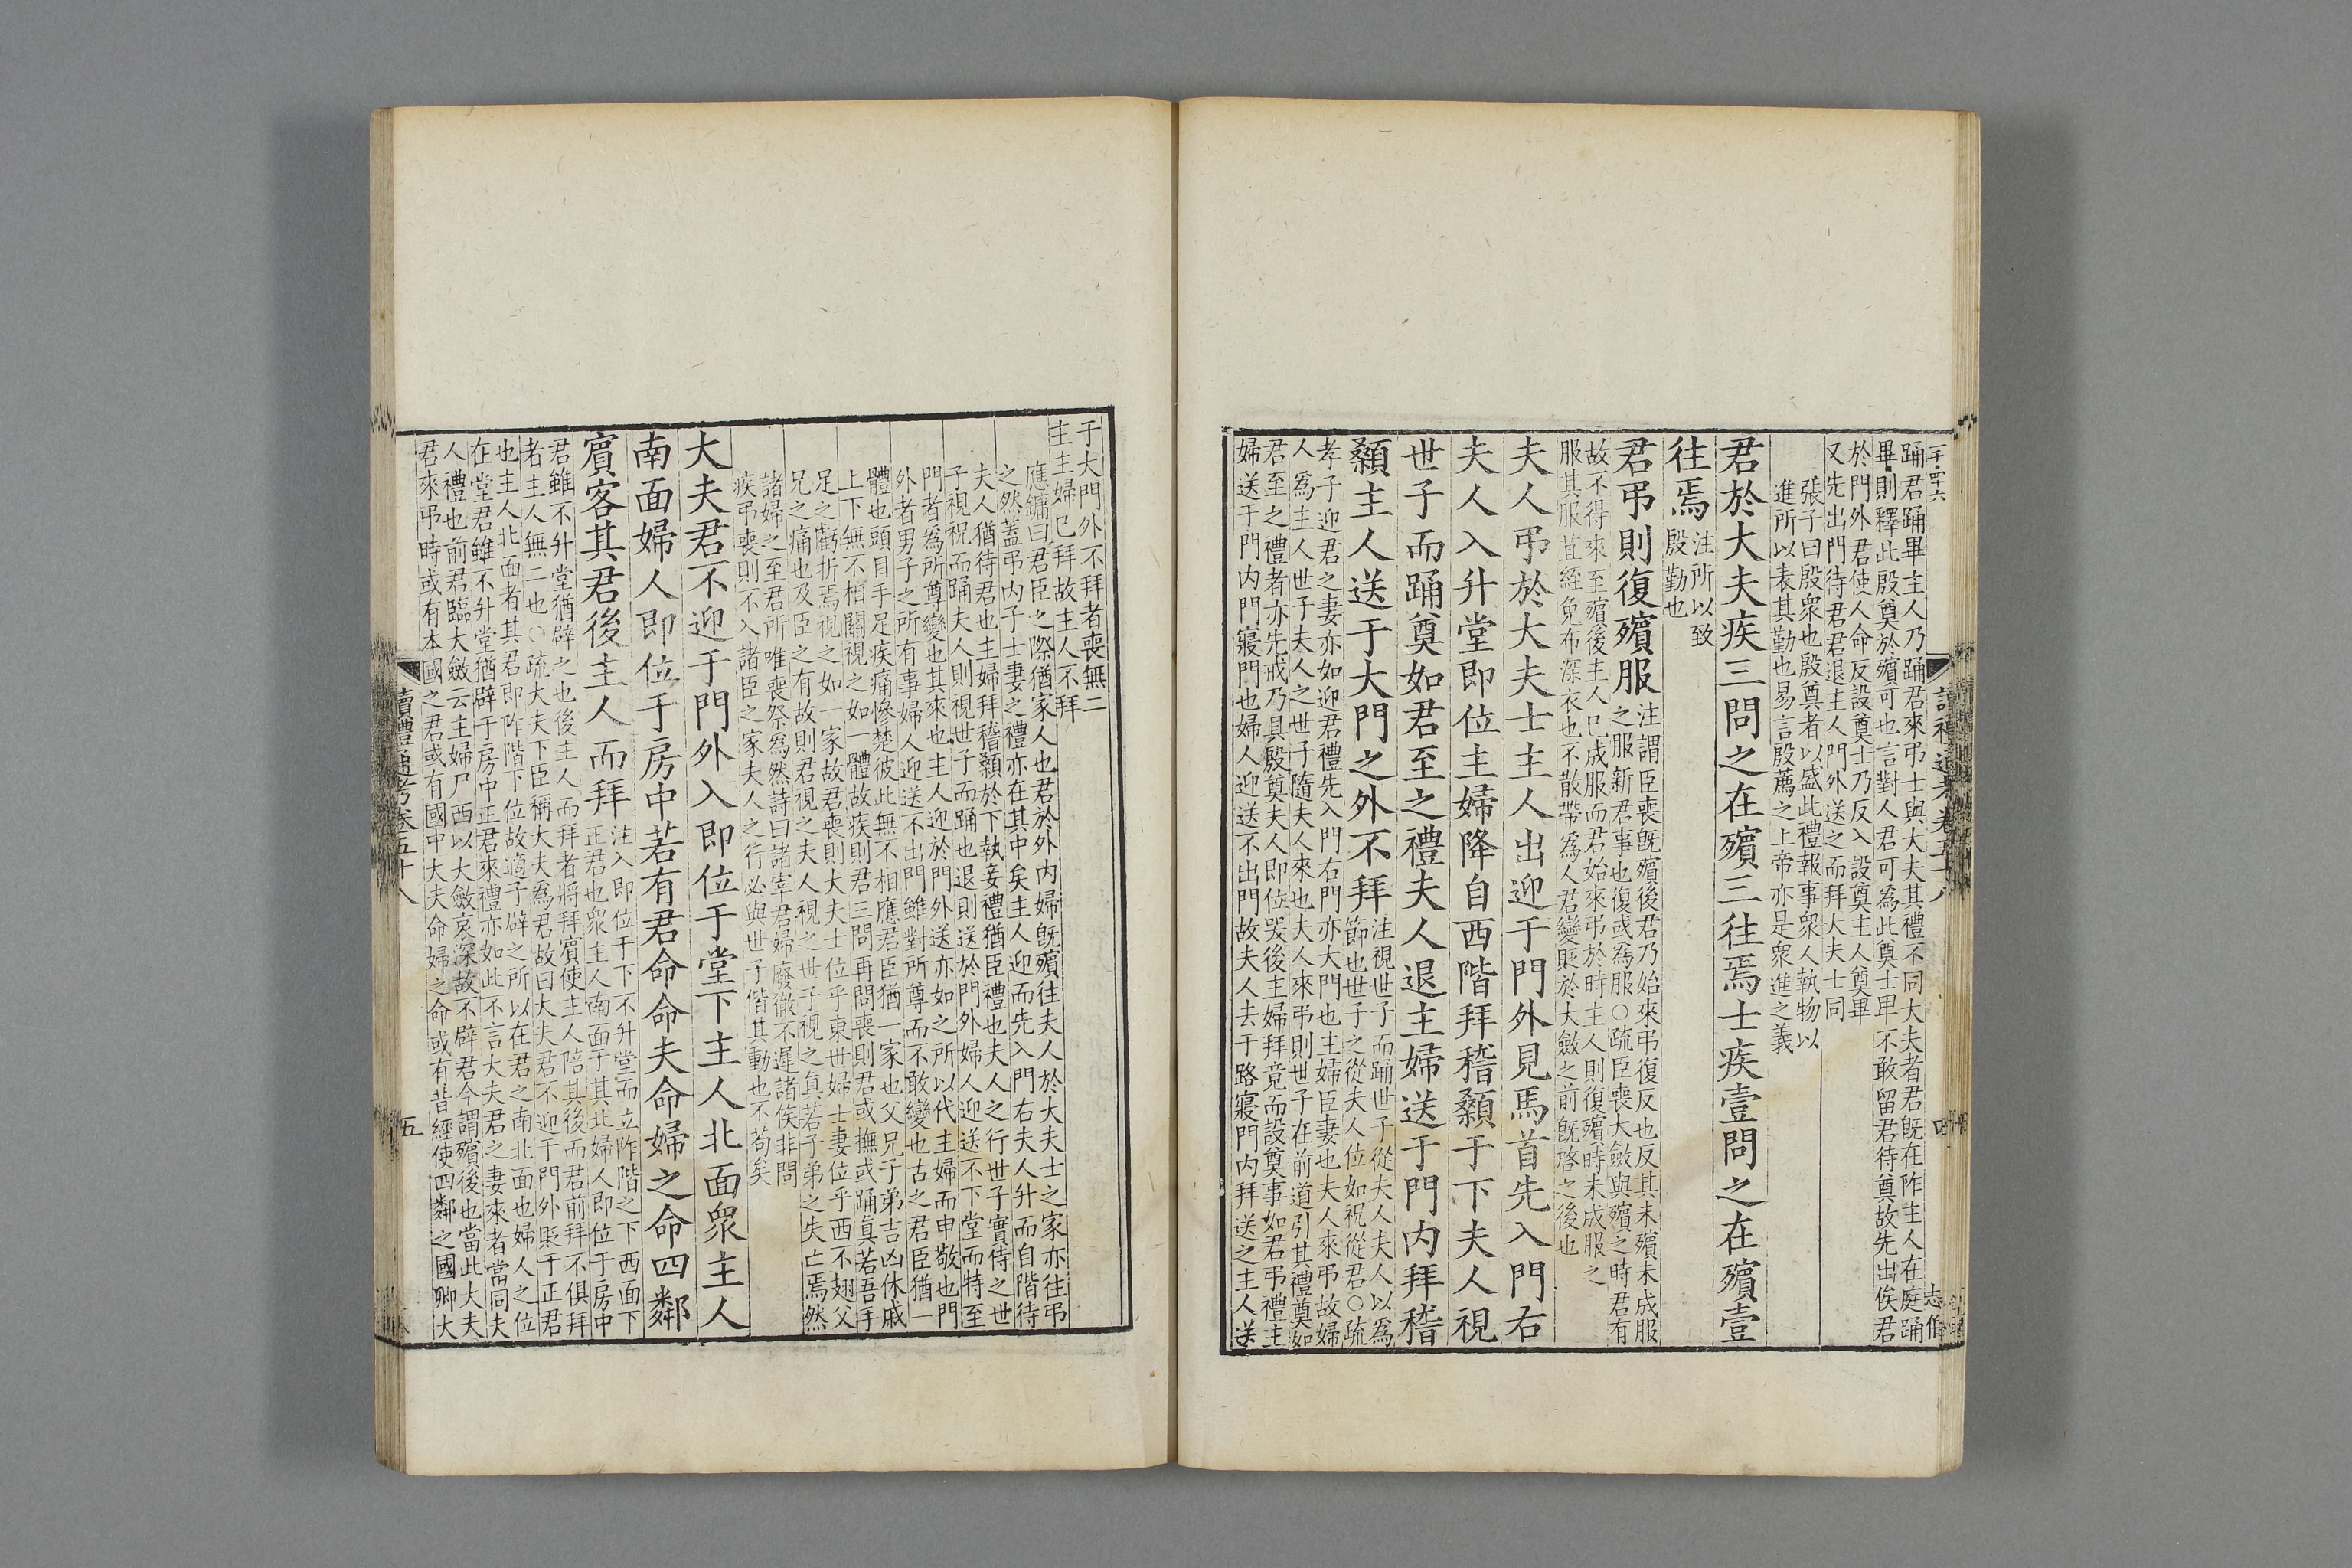 踊君踊畢主人乃踊君來弔士與大夫其禮不同大夫者君旣在阼主人在庭踊
畢則釋此殷奠於殯可也言對人君可為此奠士卑不敢留君待奠故先出俟君
於門外君使人命反設奠士乃反入設奠主人奠畢
又先出門待君君退主人門外送之而拜大夫士同
張子曰殷衆也殷奠者以盛此禮報事衆人執物以
進所以表其勤也易言殷薦之上帝亦是衆進之義
君於大夫疾三問之在殯三往焉士疾壹問之在殯壹
往焉
注所以致
殷勤也
君弔則復殯服
注謂臣喪旣殯後君乃始來弔復反也反其未殯未成服
之服新君事也復或為服○疏臣喪大斂與殯之時君有
故不得來至殯後主人已成服而君始來弔於時主人則復殯時未成服之
服其服苴絰免布深衣也不散帶為人君變貶於大斂之前旣啓之後也
夫人弔於大夫士主人出迎于門外見馬首先入門右
夫人入升堂即位主婦降自西階拜稽顙于下夫人視
世子而踊奠如君至之禮夫人退主婦送于門内拜稽
顙主人送于大門之外不拜
注視世子而踊世子從夫人夫人以為
節也世子之從夫人位如祝從君○疏
孝子迎君之妻亦如迎君禮先入門右門亦大門也主婦臣妻也夫人來弔故婦
人為主人世子夫人之世子隨夫人來也夫人來弔則世子在前道引其禮奠如
君至之禮者亦先戒乃具殷奠夫人即位哭後主婦拜竟而設奠事如君弔禮主
婦送于門内門寢門也婦人迎送不出門故夫人去于路寢門内拜送之主人送
于大門外不拜者喪無二
主主婦已拜故主人不拜
應鏞曰君臣之際猶家人也君於外内婦旣殯往夫人於大夫士之家亦往弔
之然蓋弔内子士妻之禮亦在其中矣主人迎而先入門右夫人升而自階待
夫人猶待君也主婦拜稽顙於下執妾禮猶臣禮也夫人之行世子實侍之世
子視祝而踊夫人則視世子而踊也退則送於門外婦人迎送不下堂而特至
門者為所尊變也其來也主人迎於門外送亦如之所以代主婦而申敬也門
外者男子之所有事婦人迎送不出門雖對所尊而不敢變也古之君臣猶一
體也頭目手足疾痛慘楚彼此無不相應君臣猶一家也父兄子弟吉凶休戚
上下無不相關視之如一體故疾則君三問再問喪則君或撫或踊眞若吾手
足之虧折焉視之如一家故君喪則大夫士位乎東世婦士妻位乎西不翅父
兄之痛也及臣之有故則君視之夫人視之世子視之眞若子弟之失亡焉然
諸婦之至君所唯喪祭為然詩曰諸宰君婦廢徹不遲諸侯非問
疾弔喪則不入諸臣之家夫人之行必與世子偕其動也不苟矣
大夫君不迎于門外入即位于堂下主人北面衆主人
南面婦人即位于房中若有君命命夫命婦之命四鄰
賓客其君後主人而拜
注入即位于下不升堂而立阼階之下西面下
正君也衆主人南面于其北婦人即位于房中
君雖不升堂猶辟之也後主人而拜者將拜賓使主人陪其後而君前拜不俱拜
者主人無二也○疏大夫下臣稱大夫為君故曰大夫君不迎于門外貶于正君
也主人北面者其君即阼階下位故適子辟之所以在君之南北面也婦人之位
在堂君雖不升堂猶辟于房中正君來禮亦如此不言大夫君之妻來者當同夫
人禮也前君臨大斂云主婦尸西以大斂哀深故不辟君今謂殯後也當此大夫
君來弔時或有本國之君或有國中大夫命婦之命或有昔經使四鄰之國卿大
讀禮通考卷五十八
五